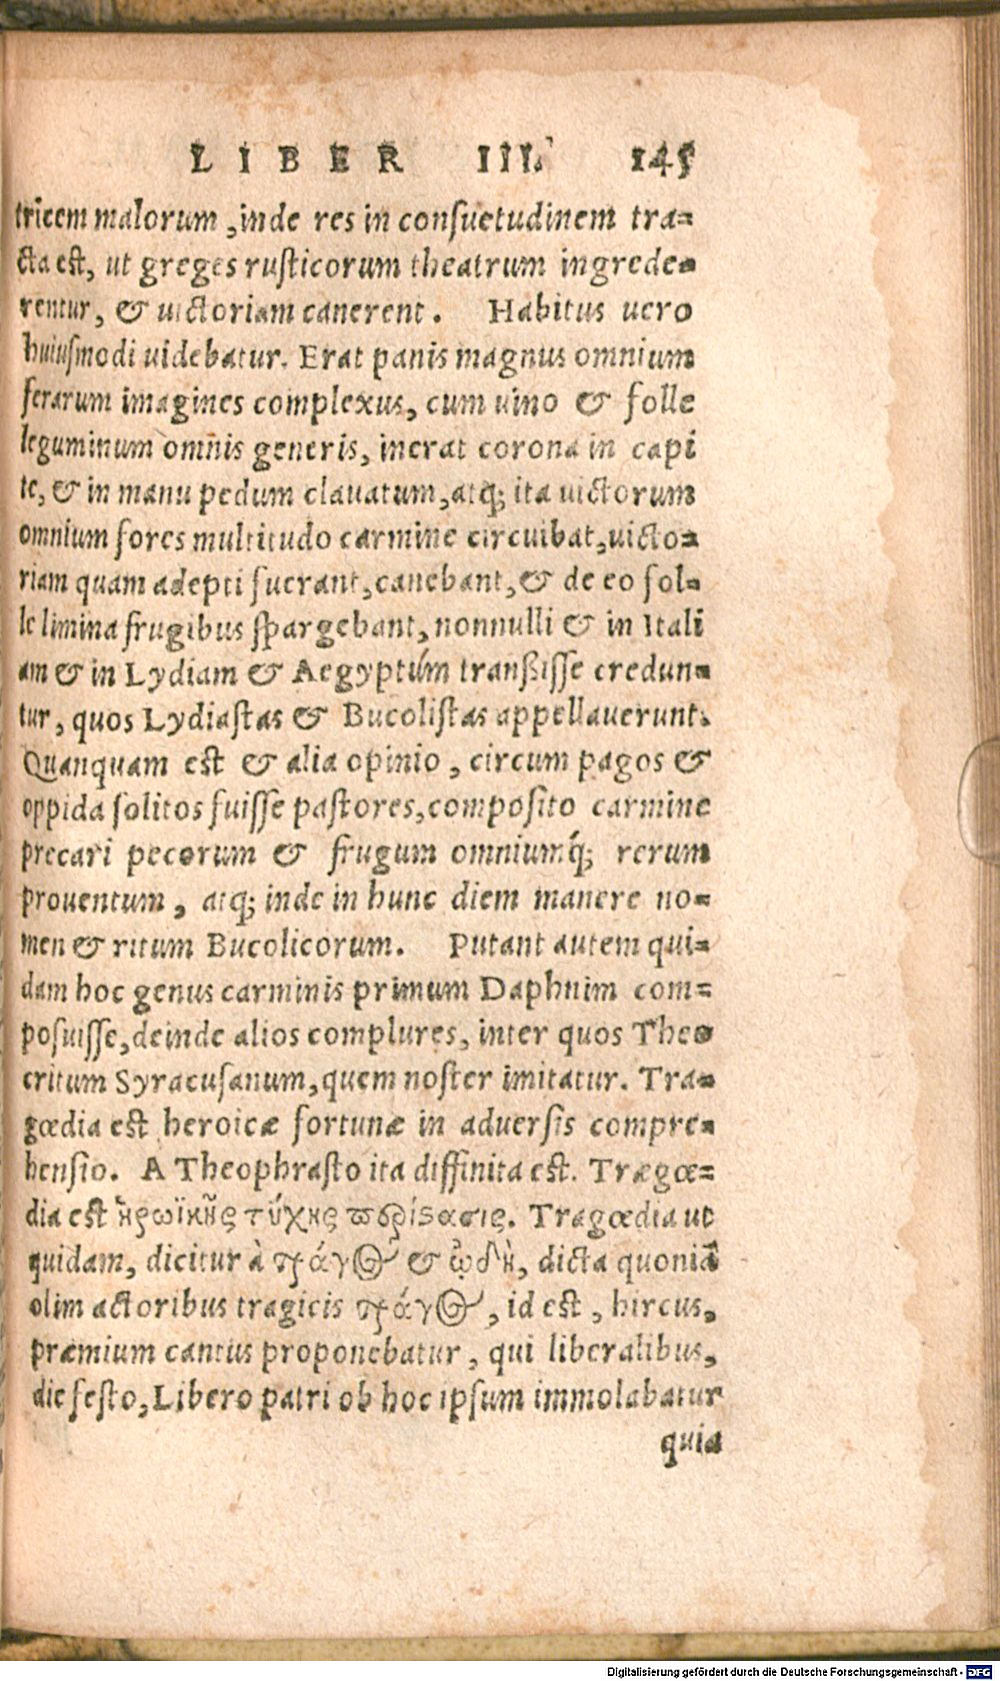 LIBER III. 145
tricem malorum, inde res in consuetudinem tra-
cta est, ut greges rusticorum theatrum ingrede-
rentur, & uictoriam canerent. Habitus uero
huiusmodi uidebatur. Erat panis magnus omnium
ferarum imagines complexus, cum uino & folle
leguminum omnis generis, inerat corona in capi
te, & in manu pedum clauatum, atq; ita uictorum
omnium fores multitudo carmine circuibat, uicto-
riam quam adepti fuerant, canebant, & de eo fol-
le limina frugibus spargebant, nonnulli & in Itali
am & in Lydiam & Aegyptúm transisse credun-
tur, quos Lydiastas & Bucolistas appellauerunt.
Quanquam est & alia opinio, circum pagos &
oppida solitos fuisse pastores, composito carmine
precari pecorum & frugum omniumq́; rerum
prouentum, atq; inde in hunc diem manere no-
men & ritum Bucolicorum. Putant autem qui-
dam hoc genus carminis primum Daphnim com-
posuisse, deinde alios complures, inter quos Theo
critum Syracusanum, quem noster imitatur. Tra-
gœdia est heroicæ fortunæ in aduersis compre-
hensio. A Theophrasto ita diffinita est. Trægœ-
dia est ἡρωϊκῆς τύχης περίστασις. Tragœdia ut
quidam, dicitur à τράγος & ᾠδὴ, dicta quoniã
olim actoribus tragicis τράγος, id est, hircus,
præmium cantus proponebatur, qui liberalibus,
die festo, Libero patri ob hoc ipsum immolabatur
quia
Digitalisierung gefördert durch die Deutsche Forschungsgemeinschaft - DFG